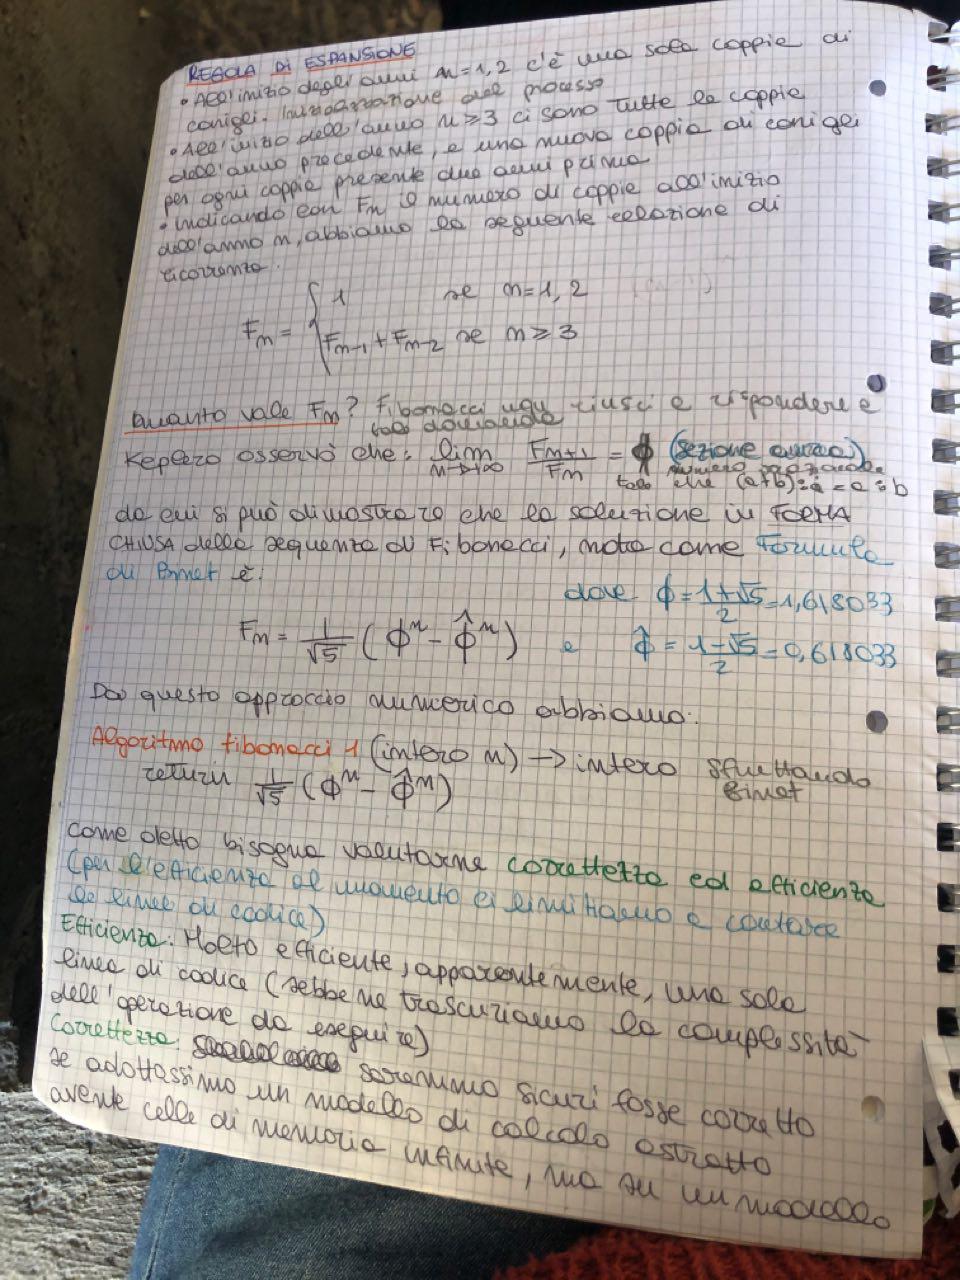 REGOLA DI ESPANSIONE
• All'inizio degli anni n=1,2 c'è una sola coppia di
conigli. Inizializzazione del processo
• All'inizio dell'anno n≥3 ci sono tutte le coppie
dell'anno precedente, e una nuova coppia di conigli
per ogni coppia presente due anni prima
• indicando con Fn il numero di coppie all'inizio
dell'anno n, abbiamo la seguente relazione di
ricorrenza.
1 se n=1,2
Fn = { Fn-1 + Fn-2 se n≥3
Quanto vale Fn? Fibonacci non riuscì a rispondere a
tale domanda
Keplero osservò che: lim n→+∞ Fn+1/Fn = ϕ (sezione aurea)
numero irrazionale
tale che (a+b):a = a:b
da cui si può dimostrare che la soluzione in FORMA
CHIUSA della sequenza di Fibonacci, nota come Formula
di Binet è:
dove ϕ = 1+√5/2 = 1,618033
Fn = 1/√5 (ϕⁿ - ϕ̂ⁿ) e ϕ̂ = 1-√5/2 = 0,618033
Da questo approccio numerico abbiamo:
Algoritmo fibonacci 1 (intero n) → intero sfruttando
Binet
return 1/√5 (ϕⁿ - ϕ̂ⁿ)
Come detto bisogna valutarne correttezza ed efficienza
(per l'efficienza al momento ci limitiamo a contare
le linee di codice)
Efficienza: Molto efficiente, apparentemente, una sola
linea di codice (sebbene trascuriamo la complessità
dell'operazione da eseguire)
Correttezza: saremmo sicuri fosse corretto
se adottassimo un modello di calcolo astratto
avente celle di memoria infinite, ma su un modello